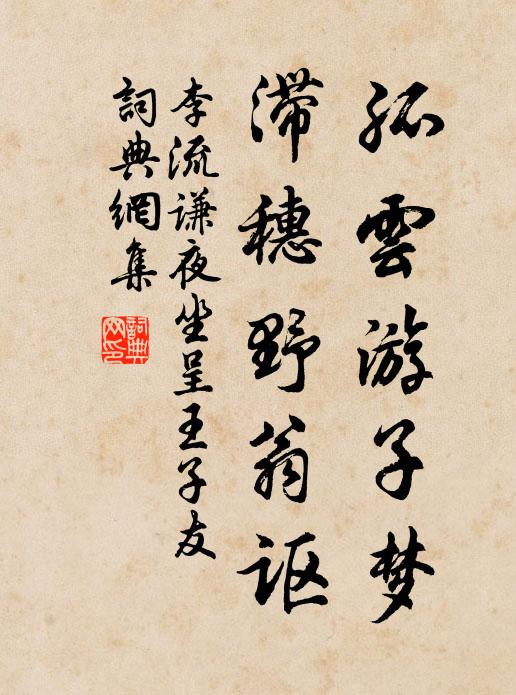 孤雲游子梦
滞穗野翁讴
李流谦夜坐呈王子友
詞典網集
詞典网印